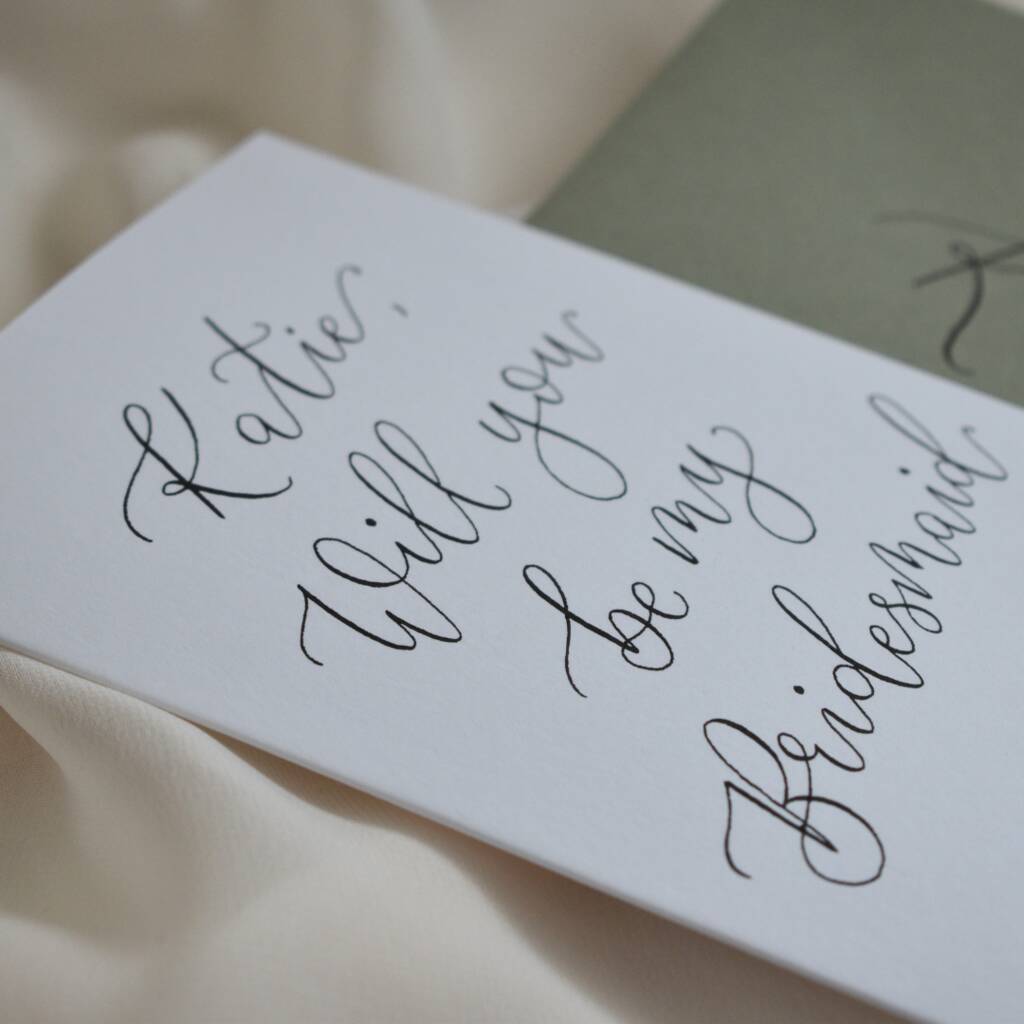 Katie,
Will you
be my
Bridesmaid